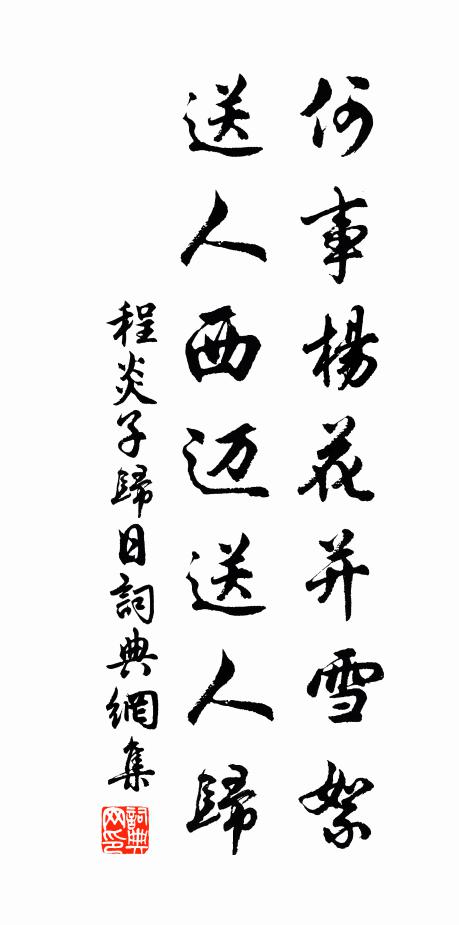 何事楊花并雪絮
送人西迈送人歸
程炎子歸日詞典網集
詞典网印